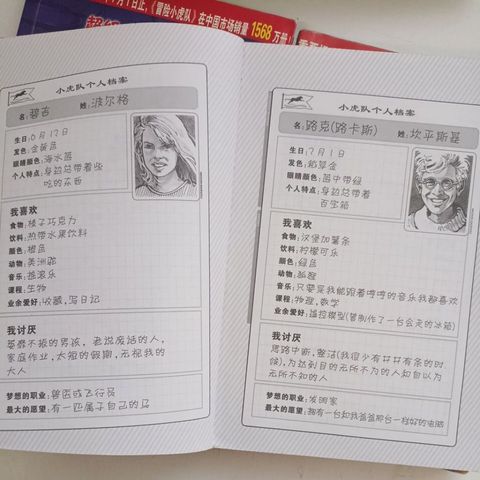 月1日止,《冒险小虎队》在中国市场销量1568万册!
小虎队个人档案
名:碧吉 姓:波尔格
生日:6月17日
发色:金黄色
眼睛颜色:海水蓝
个人特点:身边总带着些
吃的东西
我喜欢
食物:榛子巧克力
饮料:热带水果饮料
颜色:橙色
动物:美洲驼
音乐:摇滚乐
课程:生物
业余爱好:收藏,写日记
我讨厌
萎靡不振的男孩,老说废话的人,
家庭作业,太短的假期,无视我的
大人
梦想的职业:兽医或飞行员
最大的愿望:有一匹属于自己的马
小虎队个人档案
名:路克(路卡斯) 姓:坎平斯基
生日:7月1日
发色:稻草金
眼睛颜色:蓝中带绿
个人特点:身边总带着
百宝箱
我喜欢
食物:汉堡加薯条
饮料:柠檬可乐
颜色:绿色
动物:
音乐:只要是我能跟着哼哼的音乐我都喜欢
课程:物理,数学
业余爱好:遥控模型(曾制作了一台会走的冰箱)
我讨厌
思路中断,整洁(我很少有井井有条的时
候),为达到目的无所不为的人和自以为
无所不知的人
梦想的职业:发明家
最大的愿望:拥有一台和我爸爸那台一样好的电脑